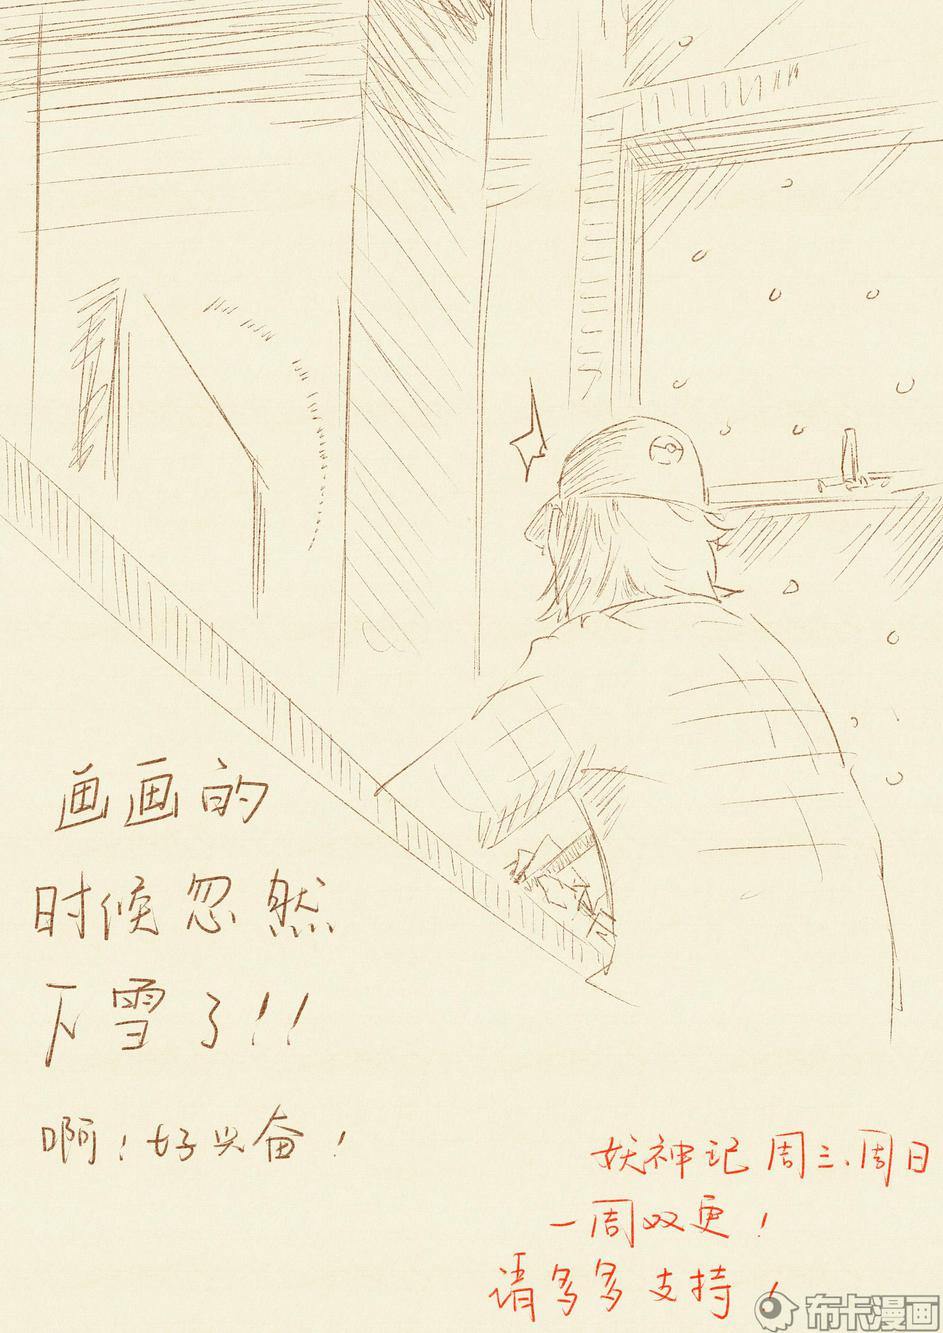 画画的
时候忽然
下雪了!!
啊!好兴奋!
妖神记 周三、周日
一周双更!
请多多支持!
布卡漫画